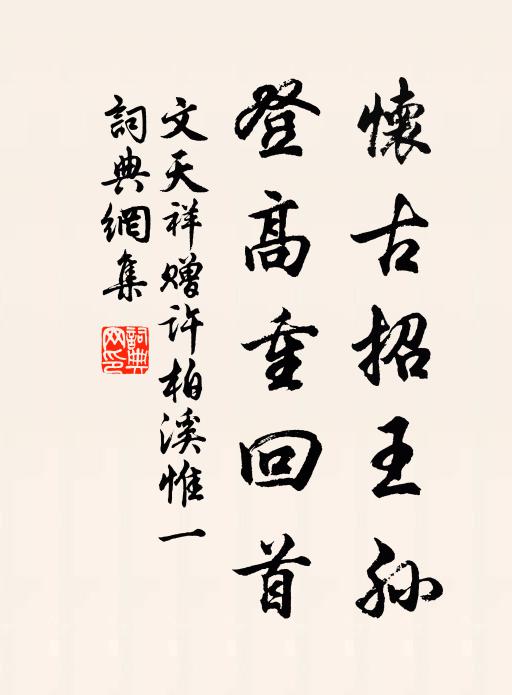 懷古招王孫
登高重回首
文天祥贈許柏溪惟一
詞典網集
詞典
网印